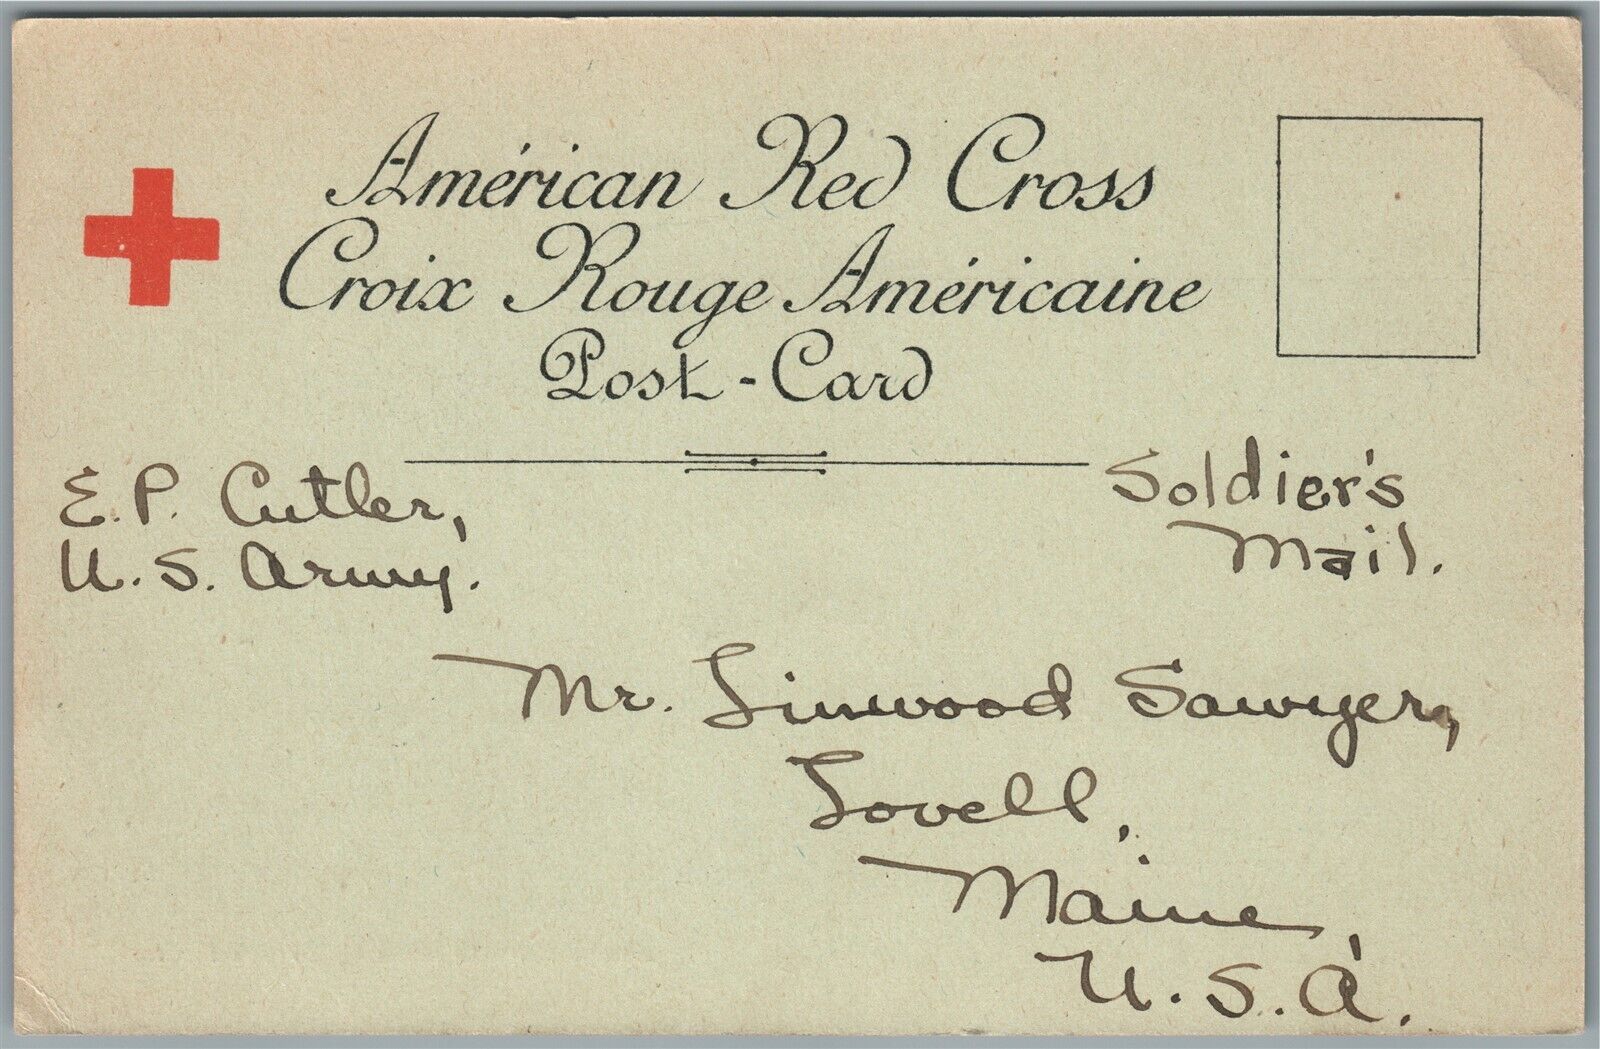 Américan Red Cross
Croix Rouge Américaine
Post-Card
E. P. Cutler,
U. S. Army.
Soldier's
Mail.
Mr. Linwood Sawyer,
Lovell,
Maine,
U. S. A.